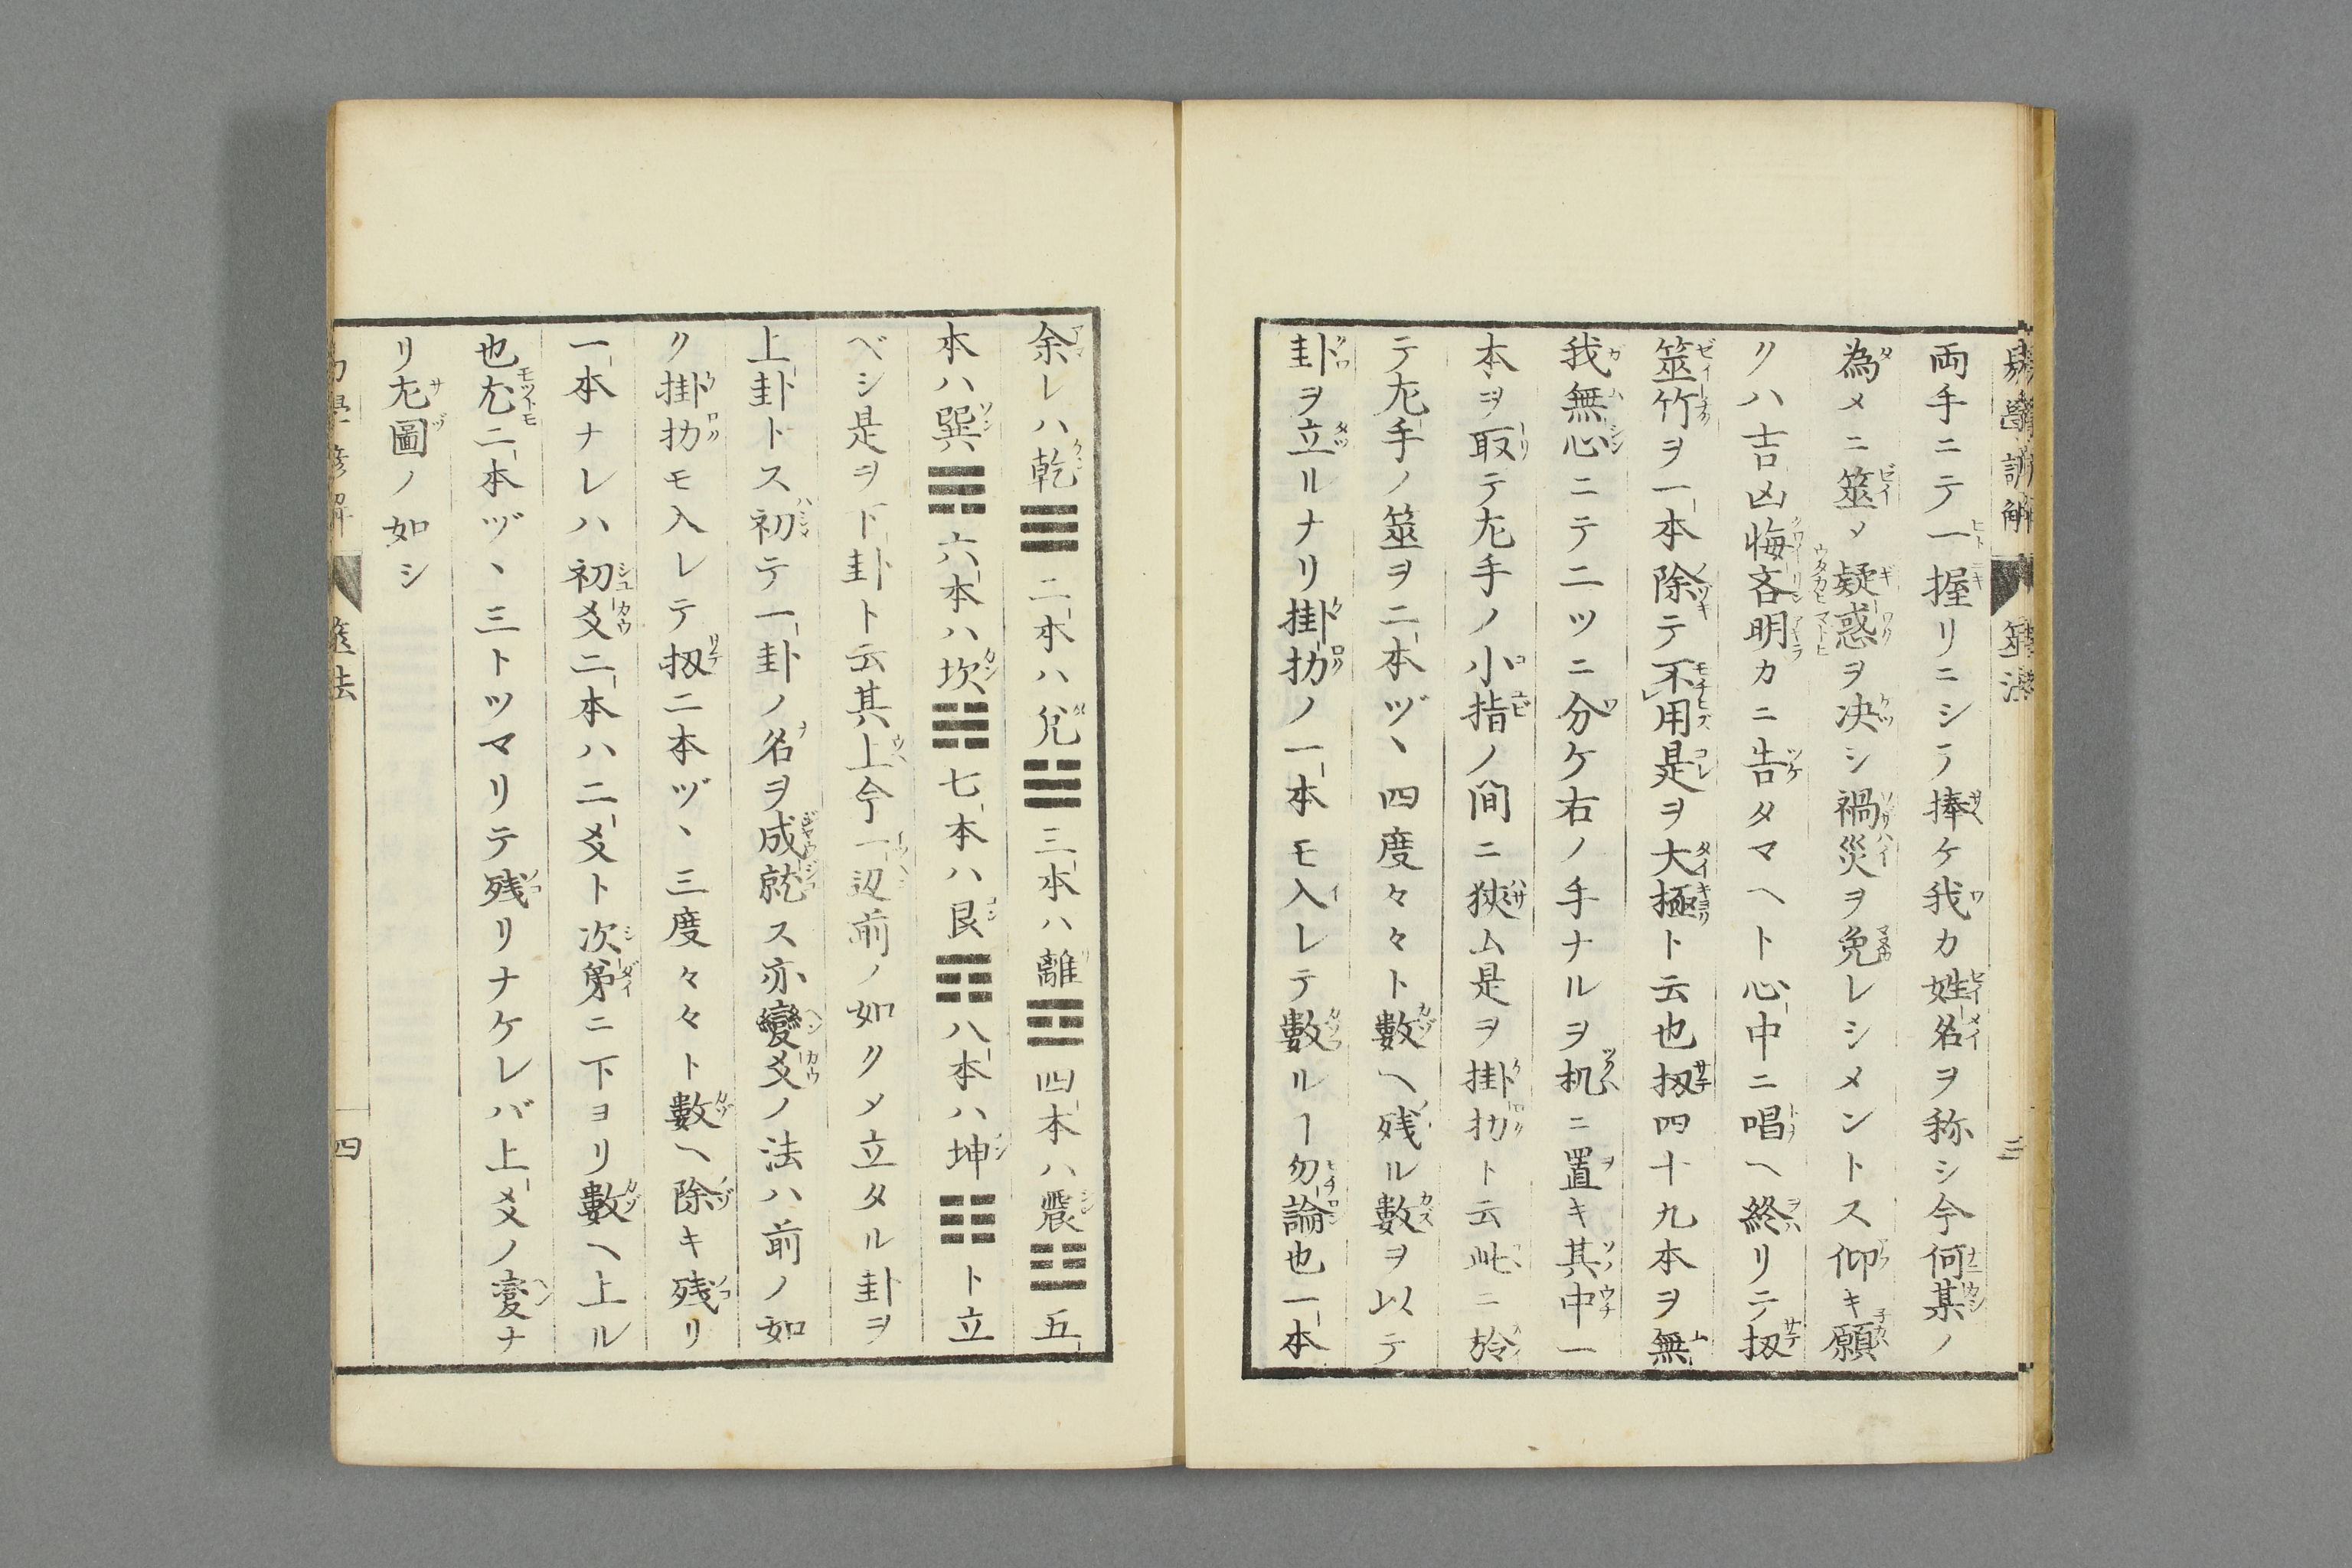 両手ニテ一握リニシテ捧ケ我カ姓名ヲ称シ今何某ノ
為メニ筮メ疑惑ヲ决シ禍災ヲ免レシメントス仰キ願
クハ吉凶悔吝明カニ告タマヘト心中ニ唱ヘ終リテ扨
筮竹ヲ一本除テ不用是ヲ大極ト云也扨四十九本ヲ無
我無心ニテ二ツニ分ケ右ノ手ナルヲ机ニ置キ其中一
本ヲ取テ左手ノ小指ノ間ニ狹ム是ヲ掛扐ト云此ニ於
テ左手ノ筮ヲ二本ヅヽ四度々々ト數ヘ残ル數ヲ以テ
卦ヲ立ルナリ掛扐ノ一本モ入レテ數ルヿ勿論也一本
余レハ乾☰二本ハ兌☱三本ハ離☲四本ハ震☳五
本ハ巽☴六本ハ坎☵七本ハ艮☶八本ハ坤☷ト立
ベシ是ヲ下卦ト云其上今一辺前ノ如クメ立タル卦ヲ
上卦トス初テ一卦ノ名ヲ成就ス亦變爻ノ法ハ前ノ如
ク掛扐モ入レテ扨二本ヅヽ三度々々ト數ヘ除キ残リ
一本ナレハ初爻二本ハ二爻ト次第ニ下ヨリ數ヘ上ル
也尤二本ヅヽ三トツマリテ残リナケレバ上爻ノ變ナ
リ左圖ノ如シ
四